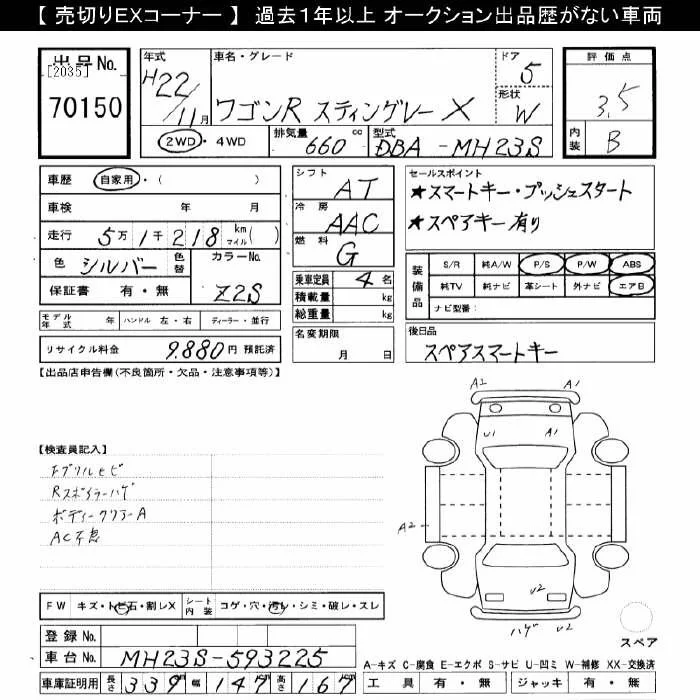 【 売切りEXコーナー 】 過去1年以上 オークション出品歴がない車両
出品No.
[2035]
70150
年式 車名・グレード ドア 評価点
H22/11月 ワゴンR スティングレー X 5 3.5
形状 W
2WD・4WD 排気量 660cc 型式 DBA-MH23S
内装 B
車歴 自家用・( )
車検 年 月
走行 5万1千218 km マイル( )
色 シルバー 色替 カラーNo. Z2S
保証書 有・無
シフト AT
冷房 AAC
燃料 G
乗車定員 4名
積載量 kg
総重量 kg
名変期限 月 日
セールスポイント
★スマートキー・プッシュスタート
★スペアキー有り
装備品 S/R 純A/W P/S P/W ABS
純TV 純ナビ 革シート 外ナビ エアB
ナビ型番:
後日品
スペアスマートキー
モデル年式 年 ハンドル 左・右 ディーラー・並行
リサイクル料金 9.880円 預託済
【出品店申告欄(不良箇所・欠品・注意事項等)】
【検査員記入】
Rスポイラーハゲ
ボディークリアーA
A2 A1
U1 A1
A2
U2
ハゲ U2
スペア
FW キズ・トビ石・割レX シート内装 コゲ・穴・汚レ・シミ・破レ・スレ
登録No.
車台No. MH23S-593225
車庫証明用 長さ 339 幅 147 高さ 167
A-キズ C-腐食 E-エクボ S-サビ U-凹ミ W-補修 XX-交換済
工具 有・無 ジャッキ 有・無